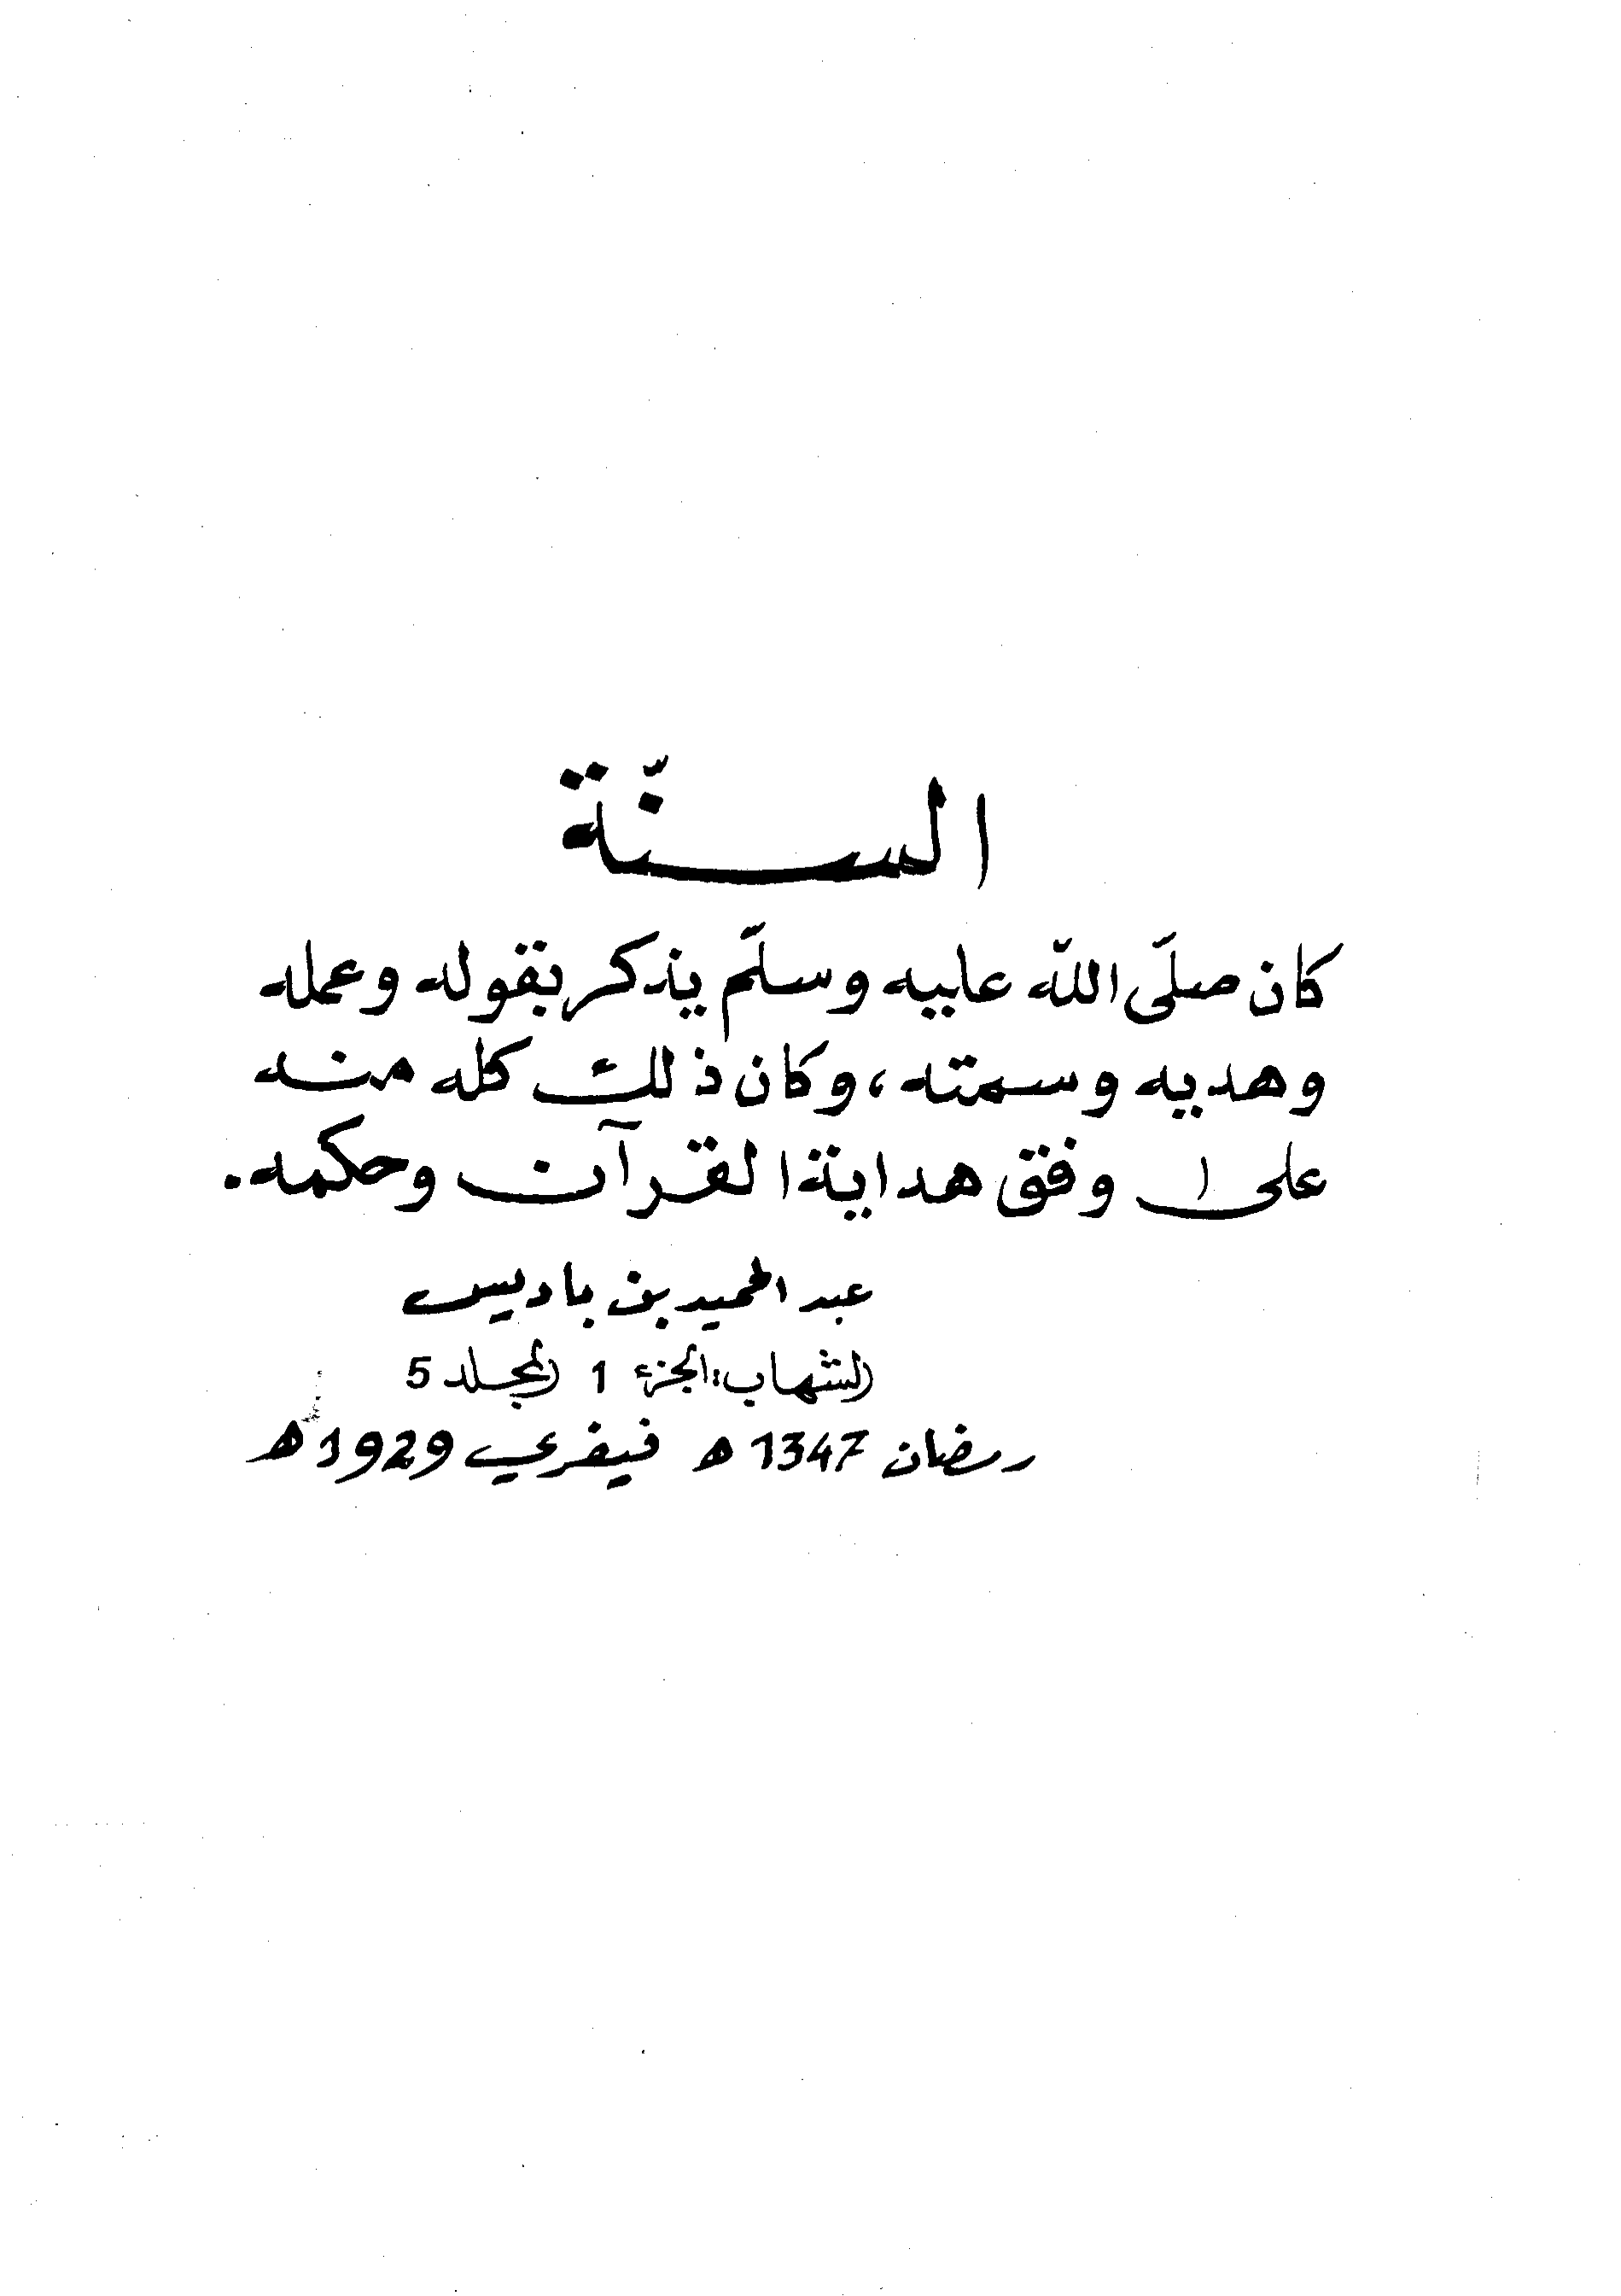 السنّة
كان صلَّى اللّه عليه وسلَّم يذكر بقوله وعمله
وهديه وسمته، وكان ذلك كله منه
على وفق هداية القرآن وحكمه.
عبد الحميد بن باديس
الشهاب: الجزء 1 المجلد 5
رمضان 1347 ه فيفري 1929 ه